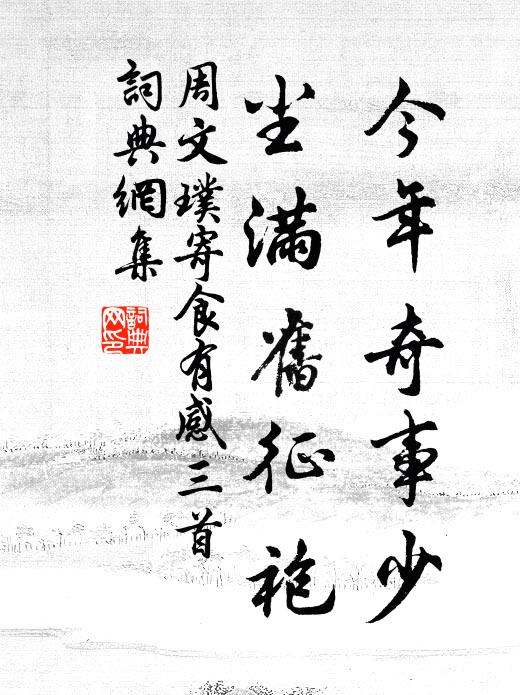 今年奇事少
尘满舊征袍
周文璞寄食有感三首
詞典網集
詞典网印